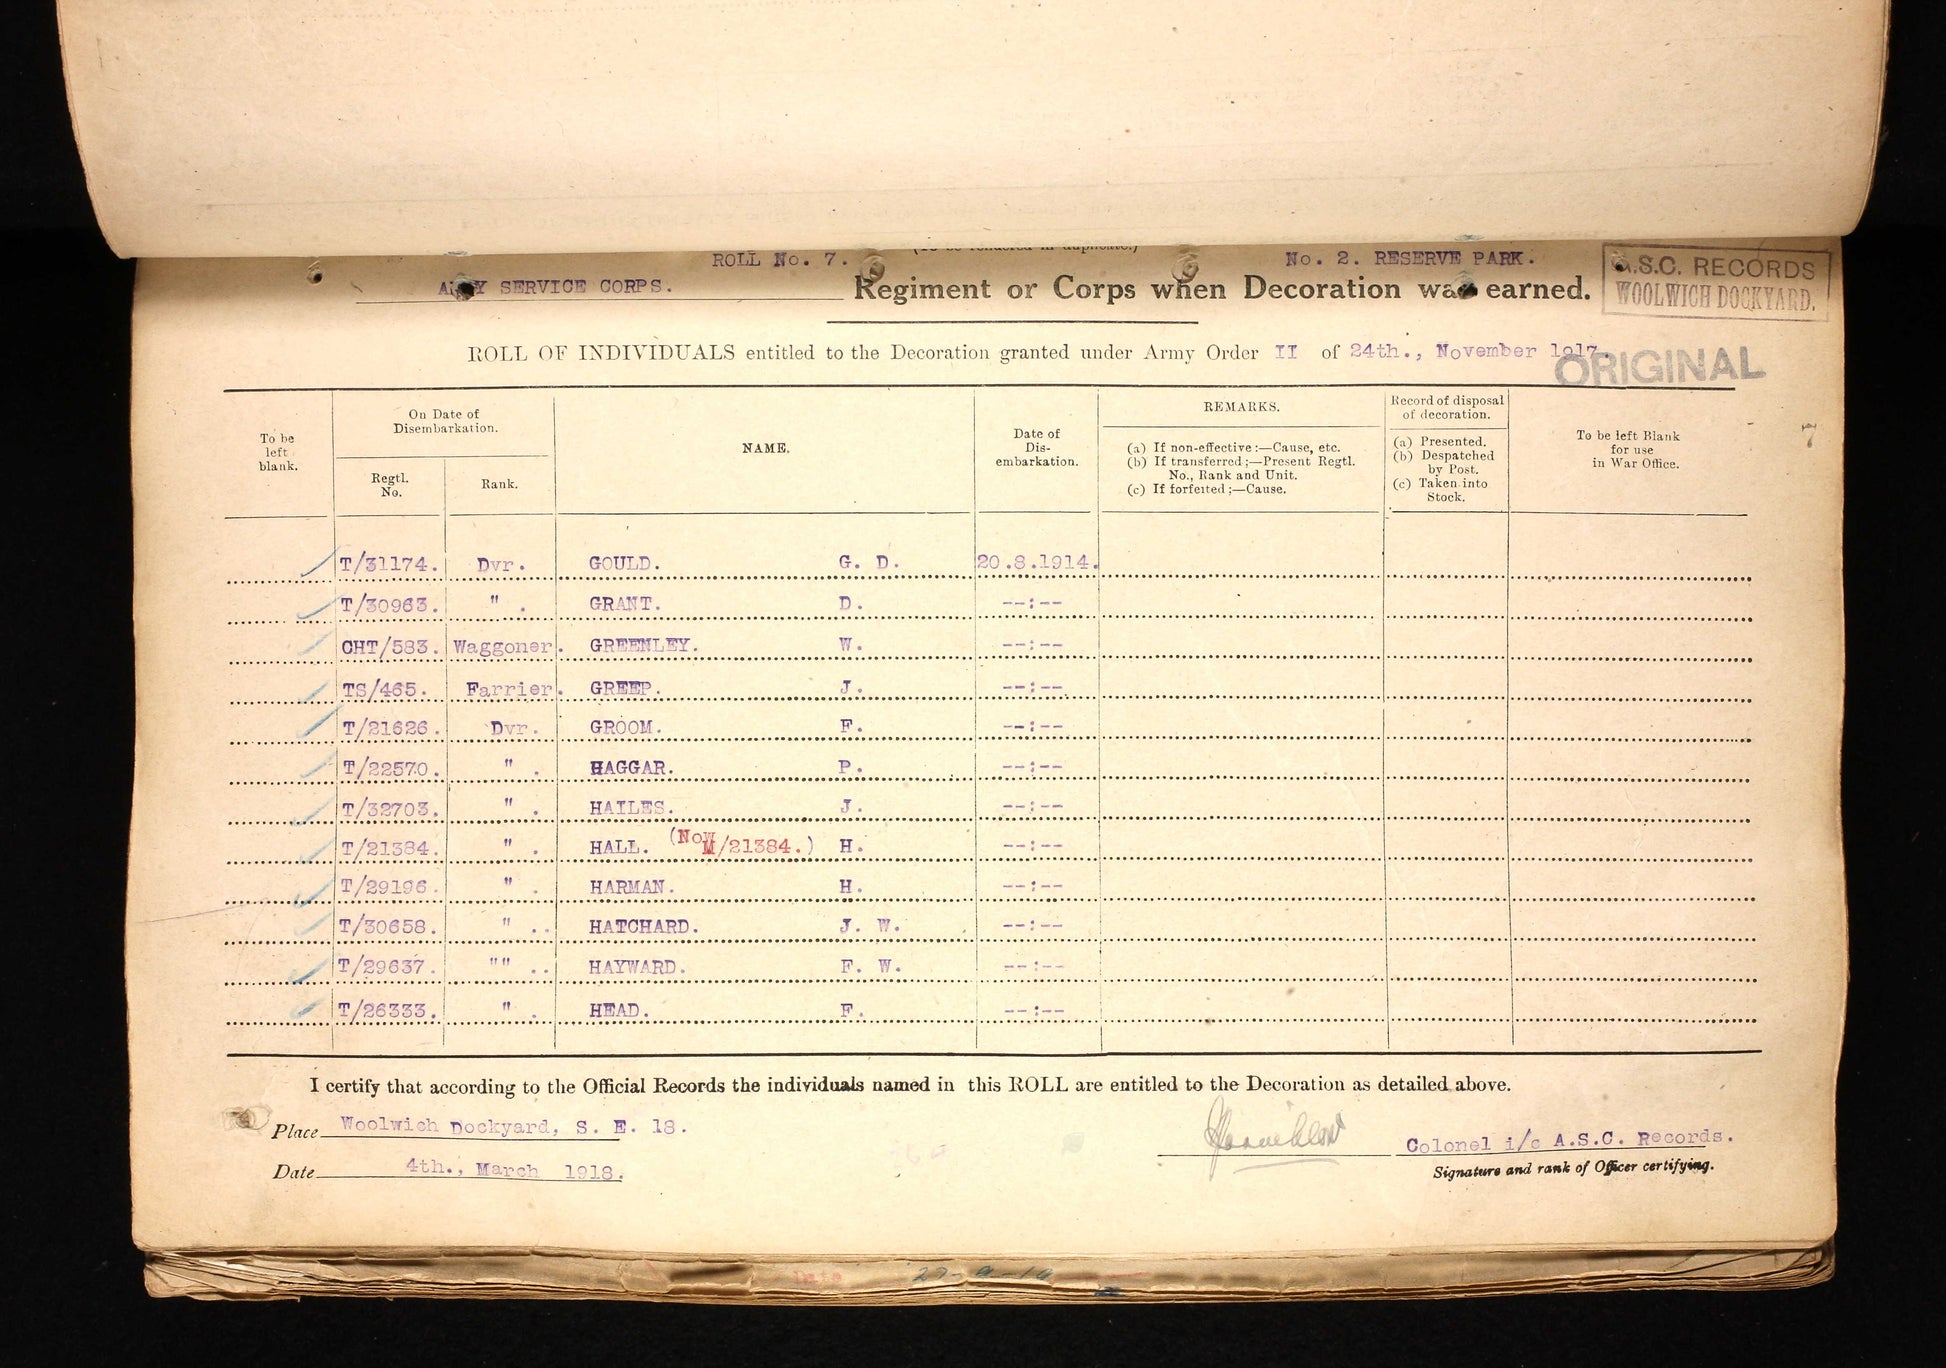 (To be rendered in duplicate.)
ROLL No. 7.
No. 2. RESERVE PARK.
ARMY SERVICE CORPS. Regiment or Corps when Decoration was earned.
A.S.C. RECORDS
WOOLWICH DOCKYARD.
ROLL OF INDIVIDUALS entitled to the Decoration granted under Army Order II of 24th., November 1917.
ORIGINAL
7
To be
left
blank.
On Date of
Disembarkation.
Regtl.
No.
Rank.
NAME.
Date of
Dis-
embarkation.
REMARKS.
(a) If non-effective:—Cause, etc.
(b) If transferred;—Present Regtl.
No., Rank and Unit.
(c) If forfeited;—Cause.
Record of disposal
of decoration.
(a) Presented.
(b) Despatched
by Post.
(c) Taken into
Stock.
To be left Blank
for use
in War Office.
T/31174. Dvr. GOULD. G. D. 20.8.1914.
T/30963. " . GRANT. D. --:--
CHT/583. Waggoner. GREENLEY. W. --:--
TS/465. Farrier. GREEP. J. --:--
T/21626. Dvr. GROOM. F. --:--
T/22570. " . HAGGAR. P. --:--
T/32703. " . HAILES. J. --:--
T/21384. " . HALL. (Now M/21384.) H. --:--
T/29196. " . HARMAN. H. --:--
T/30658. " .. HATCHARD. J. W. --:--
T/29637. "" .. HAYWARD. F. W. --:--
T/26333. " . HEAD. F. --:--
I certify that according to the Official Records the individuals named in this ROLL are entitled to the Decoration as detailed above.
Place Woolwich Dockyard, S. E. 18.
Colonel i/c A.S.C. Records.
Date 4th., March 1918.
Signature and rank of Officer certifying.
Date